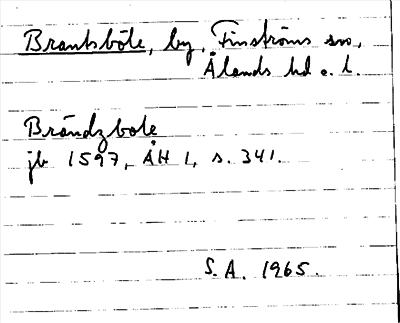 Brantsböle, by, Finströms sn,
Ålands hd o. l.
Brändzbole
jb 1597, ÅH 1, s. 341.
S.A. 1965.